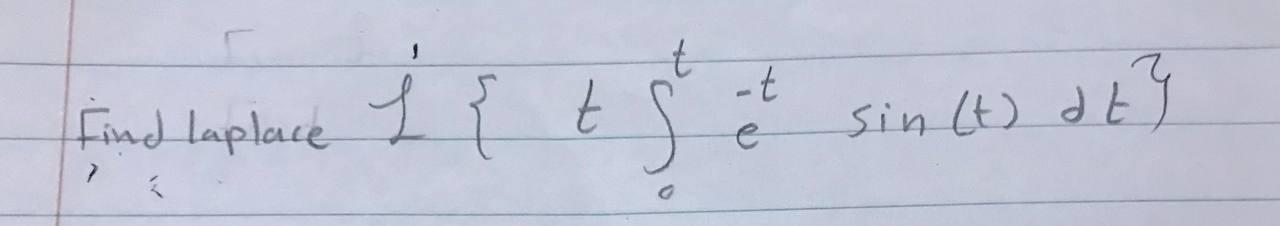 Find laplace ℒ { t ∫₀ᵗ e⁻ᵗ sin(t) dt}